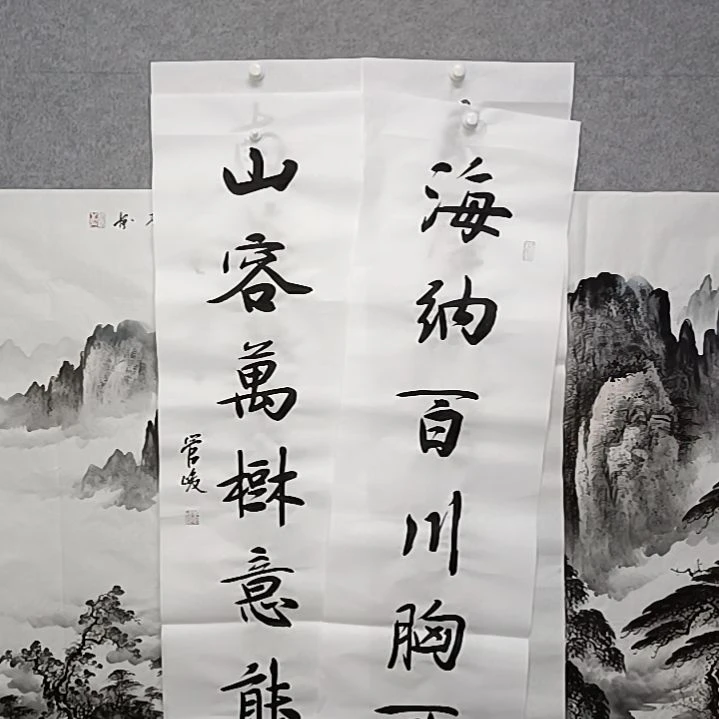 海纳百川胸
山容萬樹意
管峻